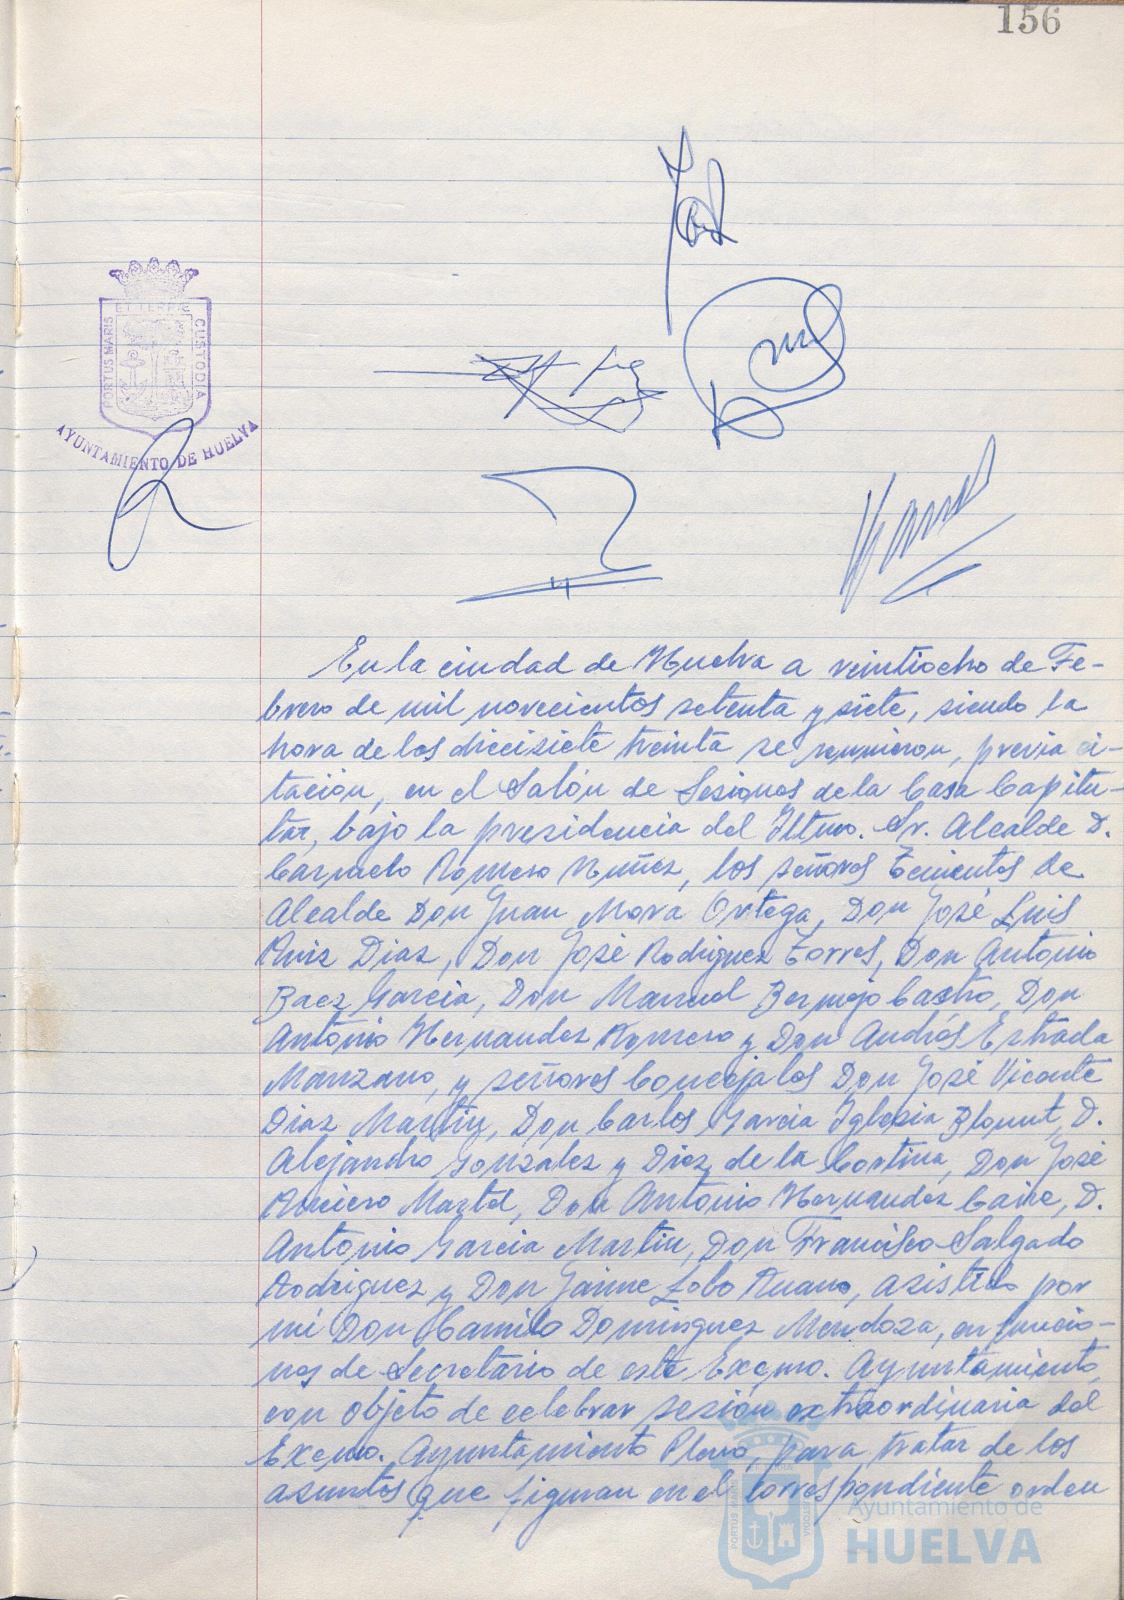 156
PORTUS MARIS
ET TERRE
CUSTODIA
AYUNTAMIENTO DE HUELVA
En la ciudad de Huelva a veintiocho de Fe-
brero de mil novecientos setenta y siete, siendo la
hora de los diecisiete treinta se reunieron, previa ci-
tación, en el Salón de Sesiones de la Casa Capitu-
lar, bajo la presidencia del Iltmo. Sr. Alcalde D.
Carmelo Romero Nuñez, los señores Tenientes de
Alcalde Don Juan Mora Ortega, Don José Luis
Ruiz Diaz, Don José Rodriguez Torres, Don Antonio
Baez Garcia, Don Manuel Bermejo Castro, Don
Antonio Hernandez Romero y Don Andrés Estrada
Manzano, y señores Concejales Don José Vicente
Diaz Martin, Don Carlos Garcia Iglesia Blount, D.
Alejandro Gonzalez y Diez de la Cortina, Don José
Martel, Don Antonio Hernandez D.
Antonio Garcia Martin, Don Francisco Salgado
Rodriguez y Don Jaime Lobo Ruano, asistido por
mi Don Camilo Dominguez Mendoza, en funcio-
nes de Secretario de este Excmo. Ayuntamiento,
con objeto de celebrar sesión extraordinaria del
Excmo. Ayuntamiento Pleno, para tratar de los
asuntos que figuran en el correspondiente orden
Ayuntamiento de
HUELVA